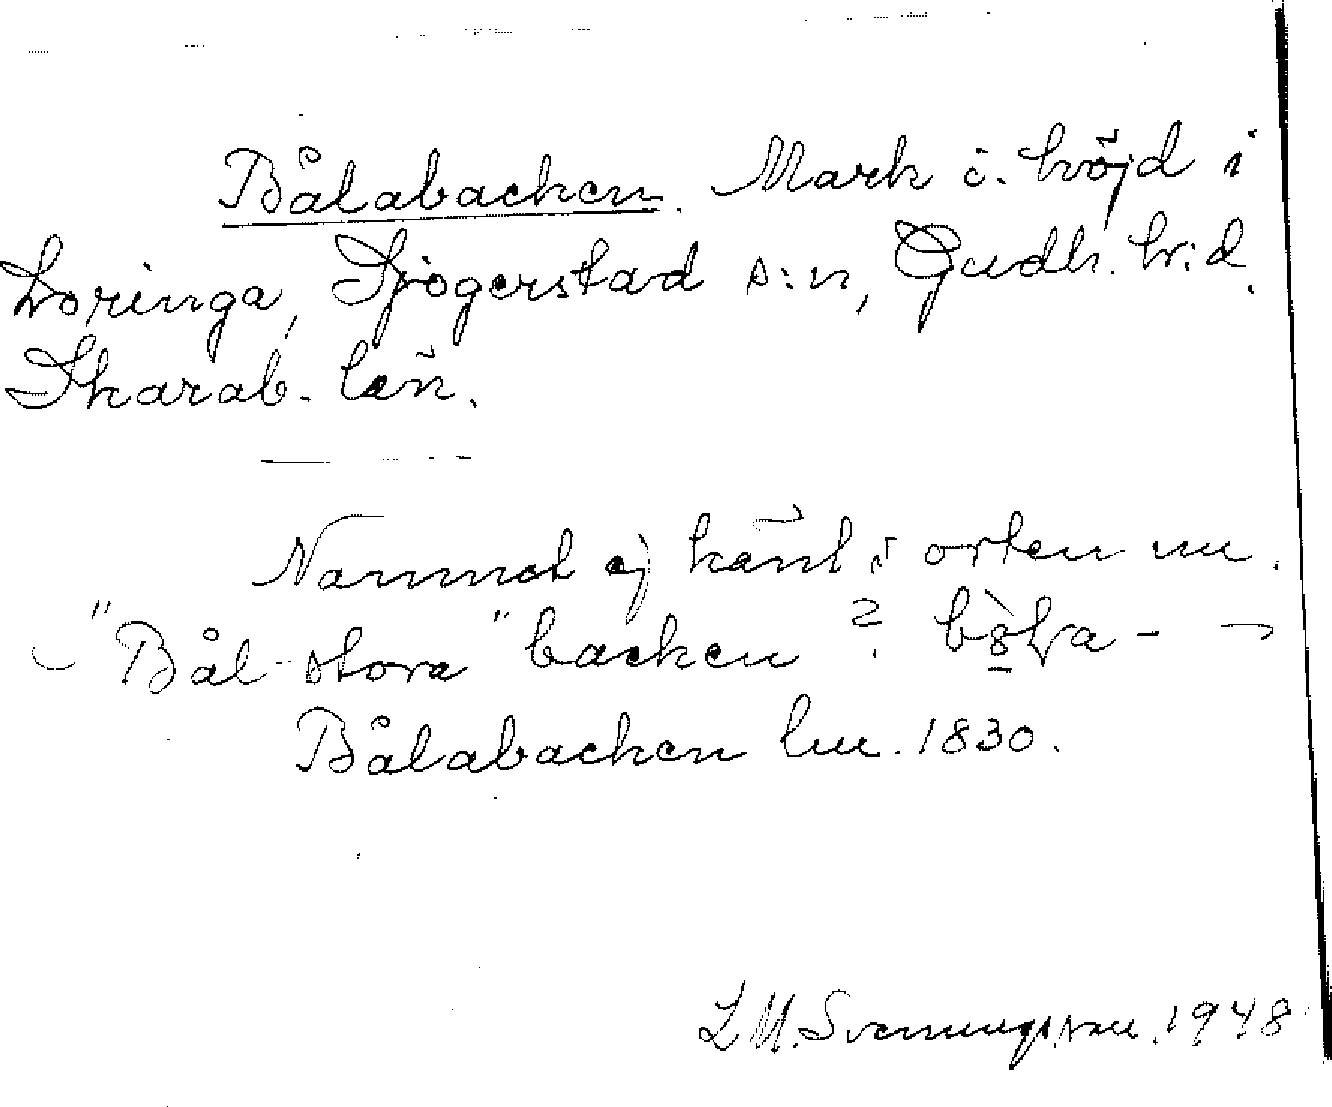 Bålabacken. Mark o. höjd i
Loringa, Sjögerstad s:n, Gudh. h:d.
Skarab. län.
Namnet ej känt i orten nu.
"Bål-stora" backen?
Bålabacken lm. 1830.
L M. Svenningsson. 1948